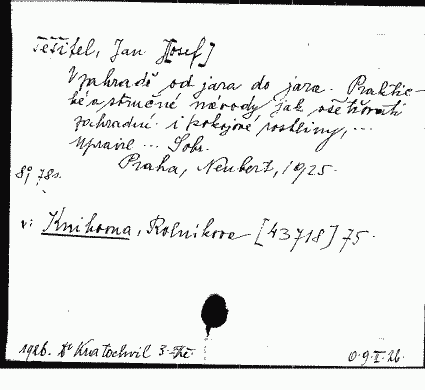 Těšitel, Jan J[osef]
V zahradě od jara do jara. Praktic-
ké a stručné návody, jak ošetřovati
zahradní i pokojové rostliny, ...
upravil ... Sobr.
Praha, Neubert, 1925.
8°, 78s.
v: Knihovna, Rolníkova [43718] 75.
1926. Dr Kratochvil
O. 9.II.26.